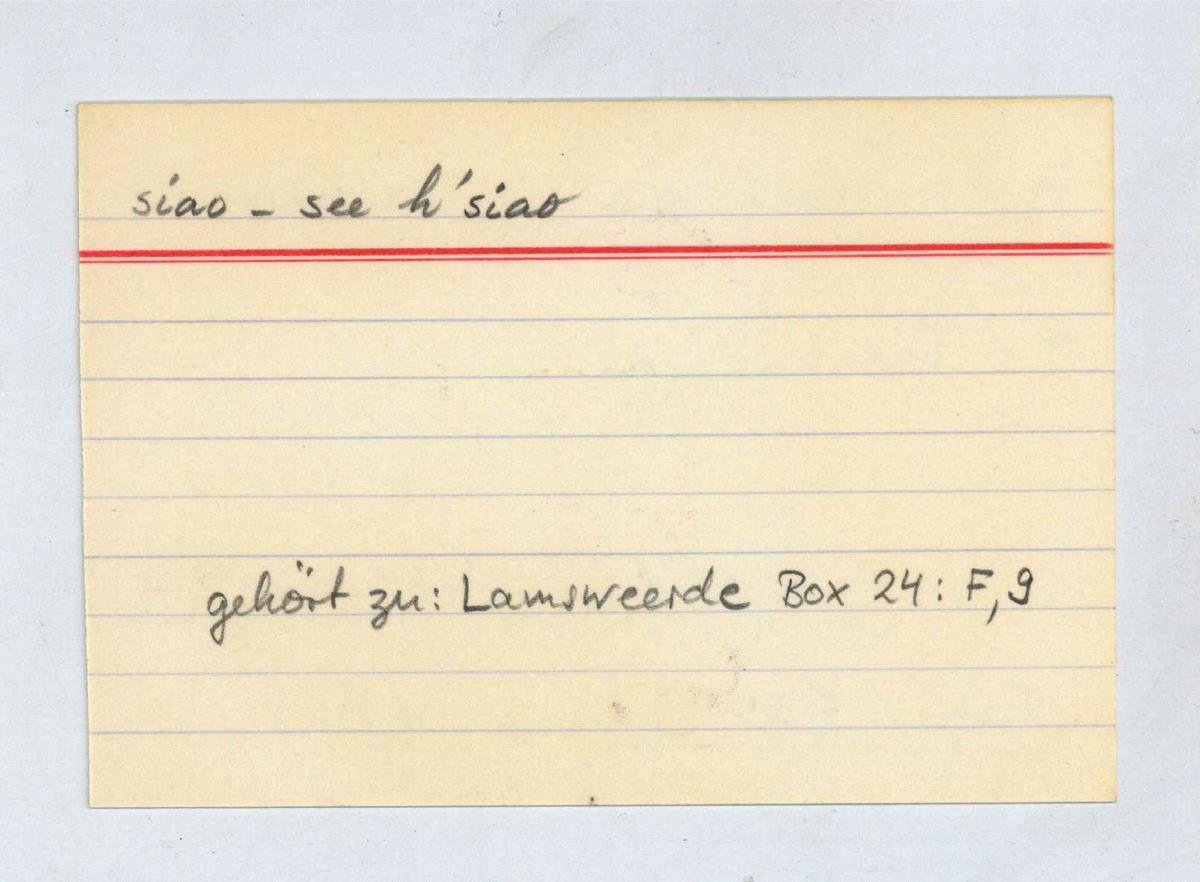 siao – see h'siao
gehört zu: Lamsweerde Box 24: F,9